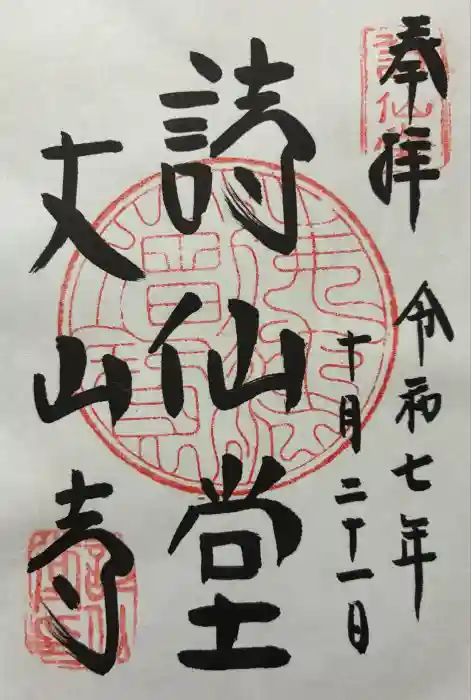 奉拝
令和七年
十月二十一日
詩仙堂
丈山寺
詩仙堂